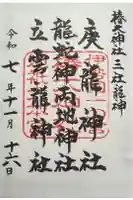 椿大神社三社龍神
庚龍神社
龍蛇神両地神社
立雲龍神社
令和七年十一月十六日